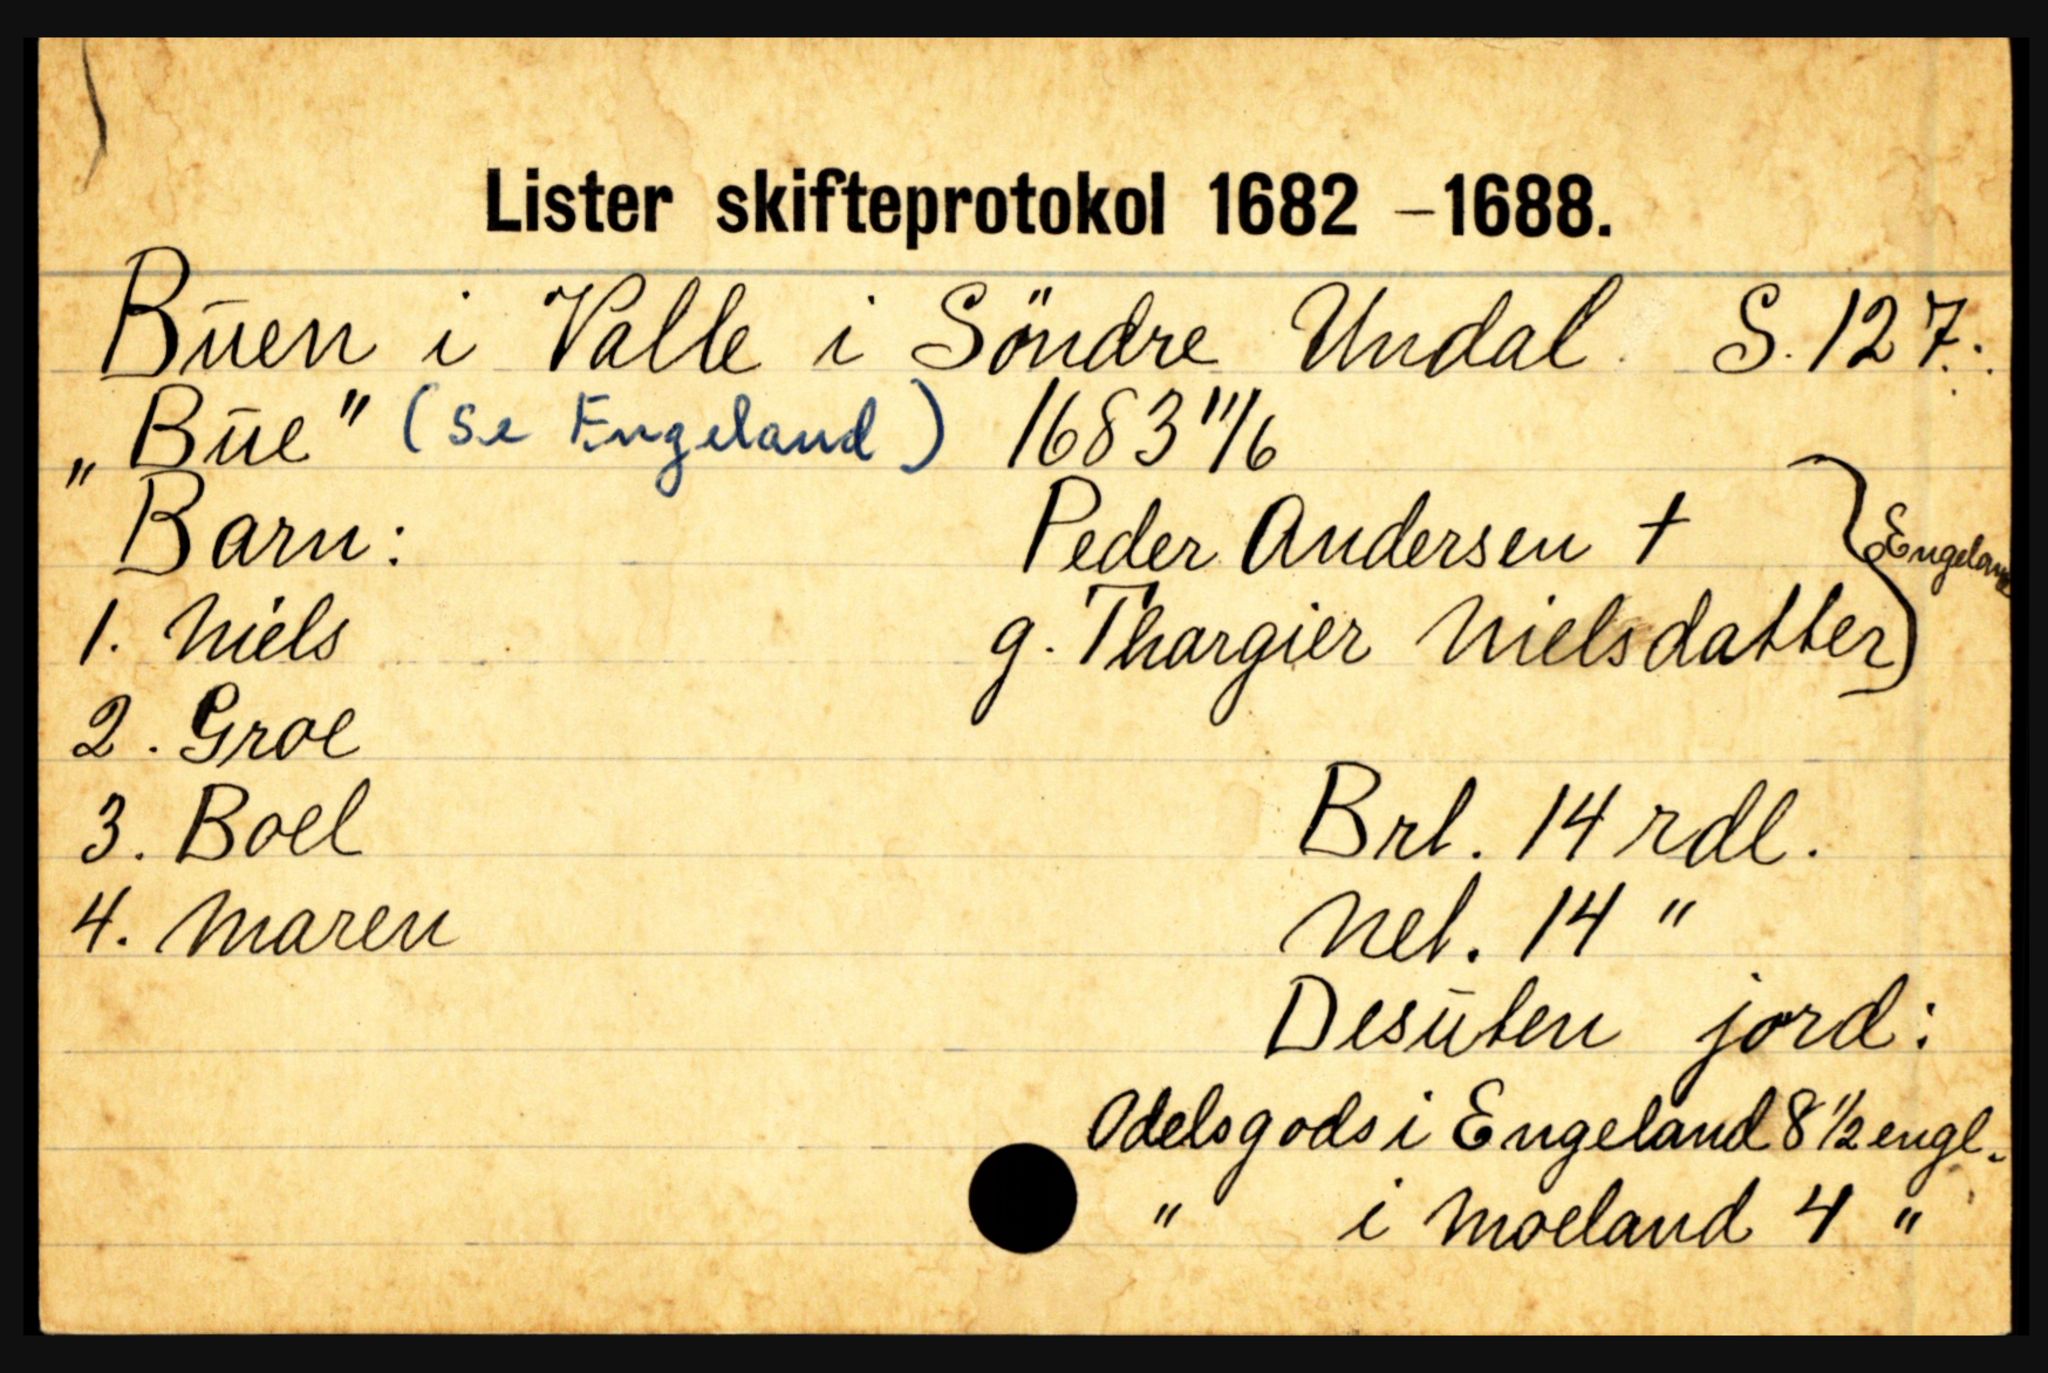 Lister skifteprotokol 1682 -1688.
Buen i Valle i Söndre Undal. S. 127.
„Bue" (se Engeland) 1683 11/6
Barn: Peder Andersen † } Engeland
1. Niels g. Thargier Nielsdatter
2. Groe
3. Boel Brt. 14 rdl.
4. Maren Net. 14 "
Desuten jord:
Odelsgods i Engeland 8 1/2 engl.
" i Moeland 4 "